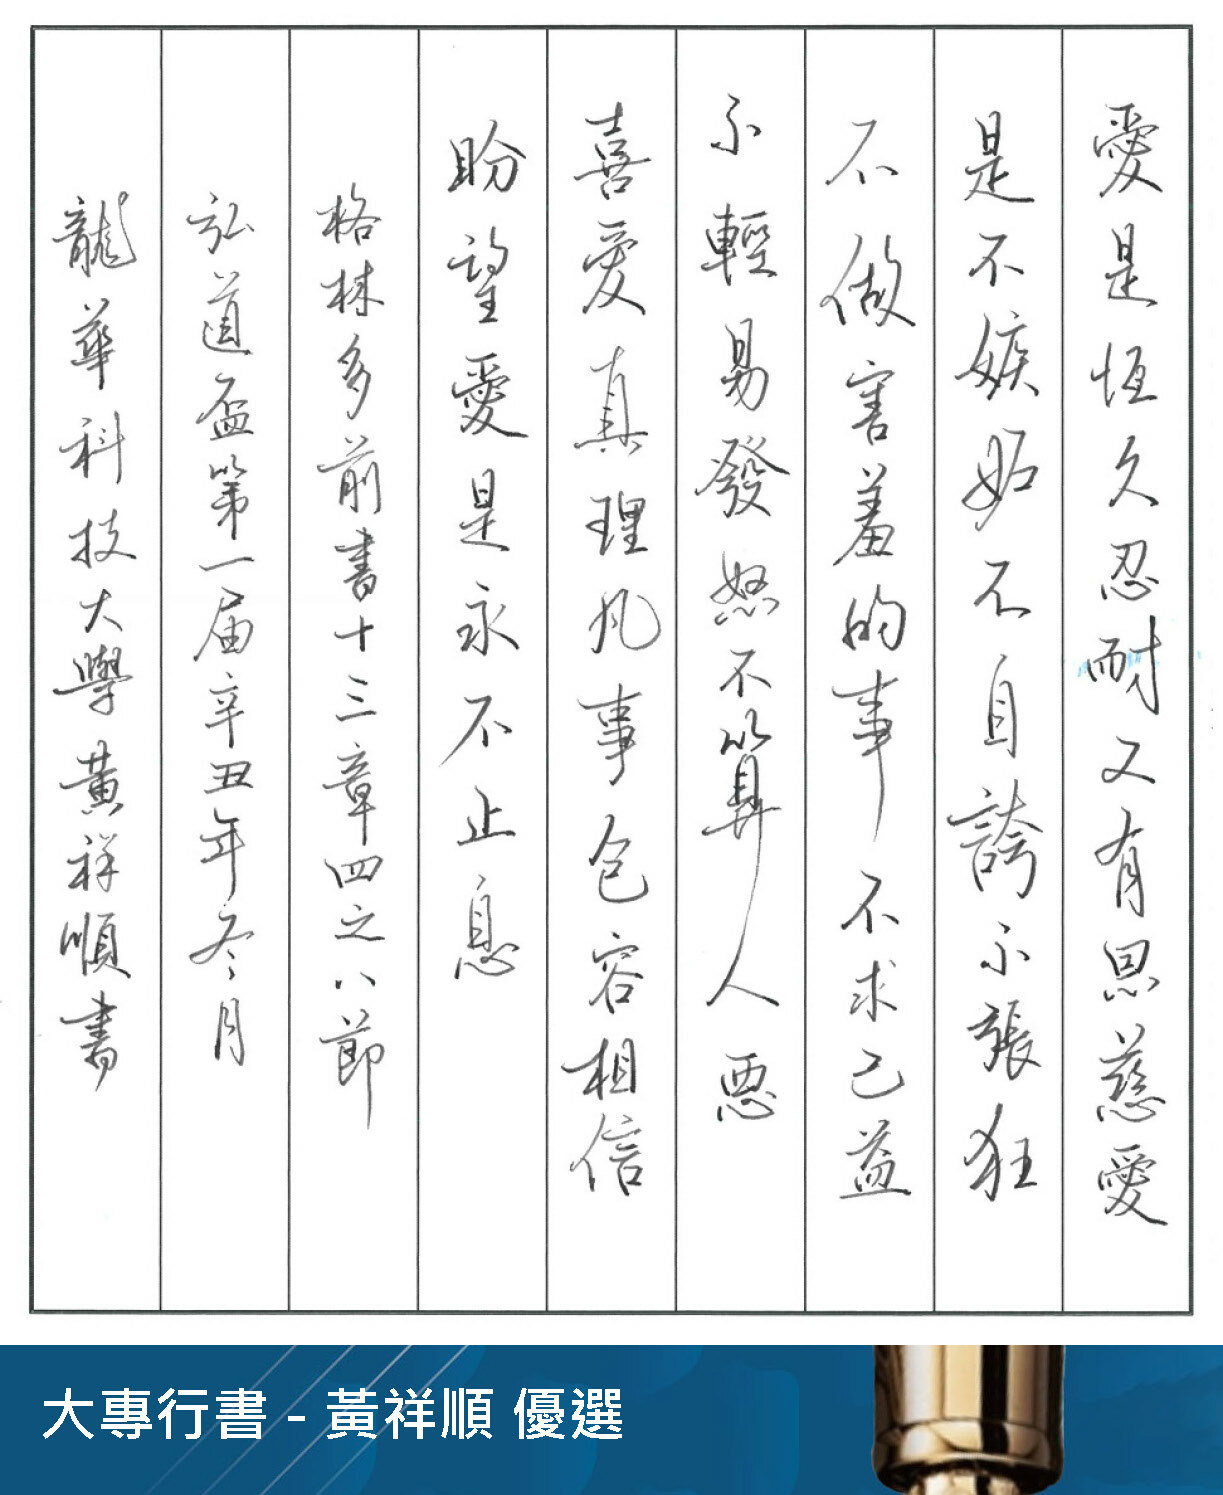 愛是恆久忍耐又有恩慈愛
是不嫉妒不自誇不張狂
不做害羞的事不求己益
不輕易發怒不算人惡
喜愛真理凡事包容相信
盼望愛是永不止息
格林多前書十三章四之八節
弘道盃第一屆辛丑年冬月
龍華科技大學黃祥順書
大專行書 - 黃祥順 優選